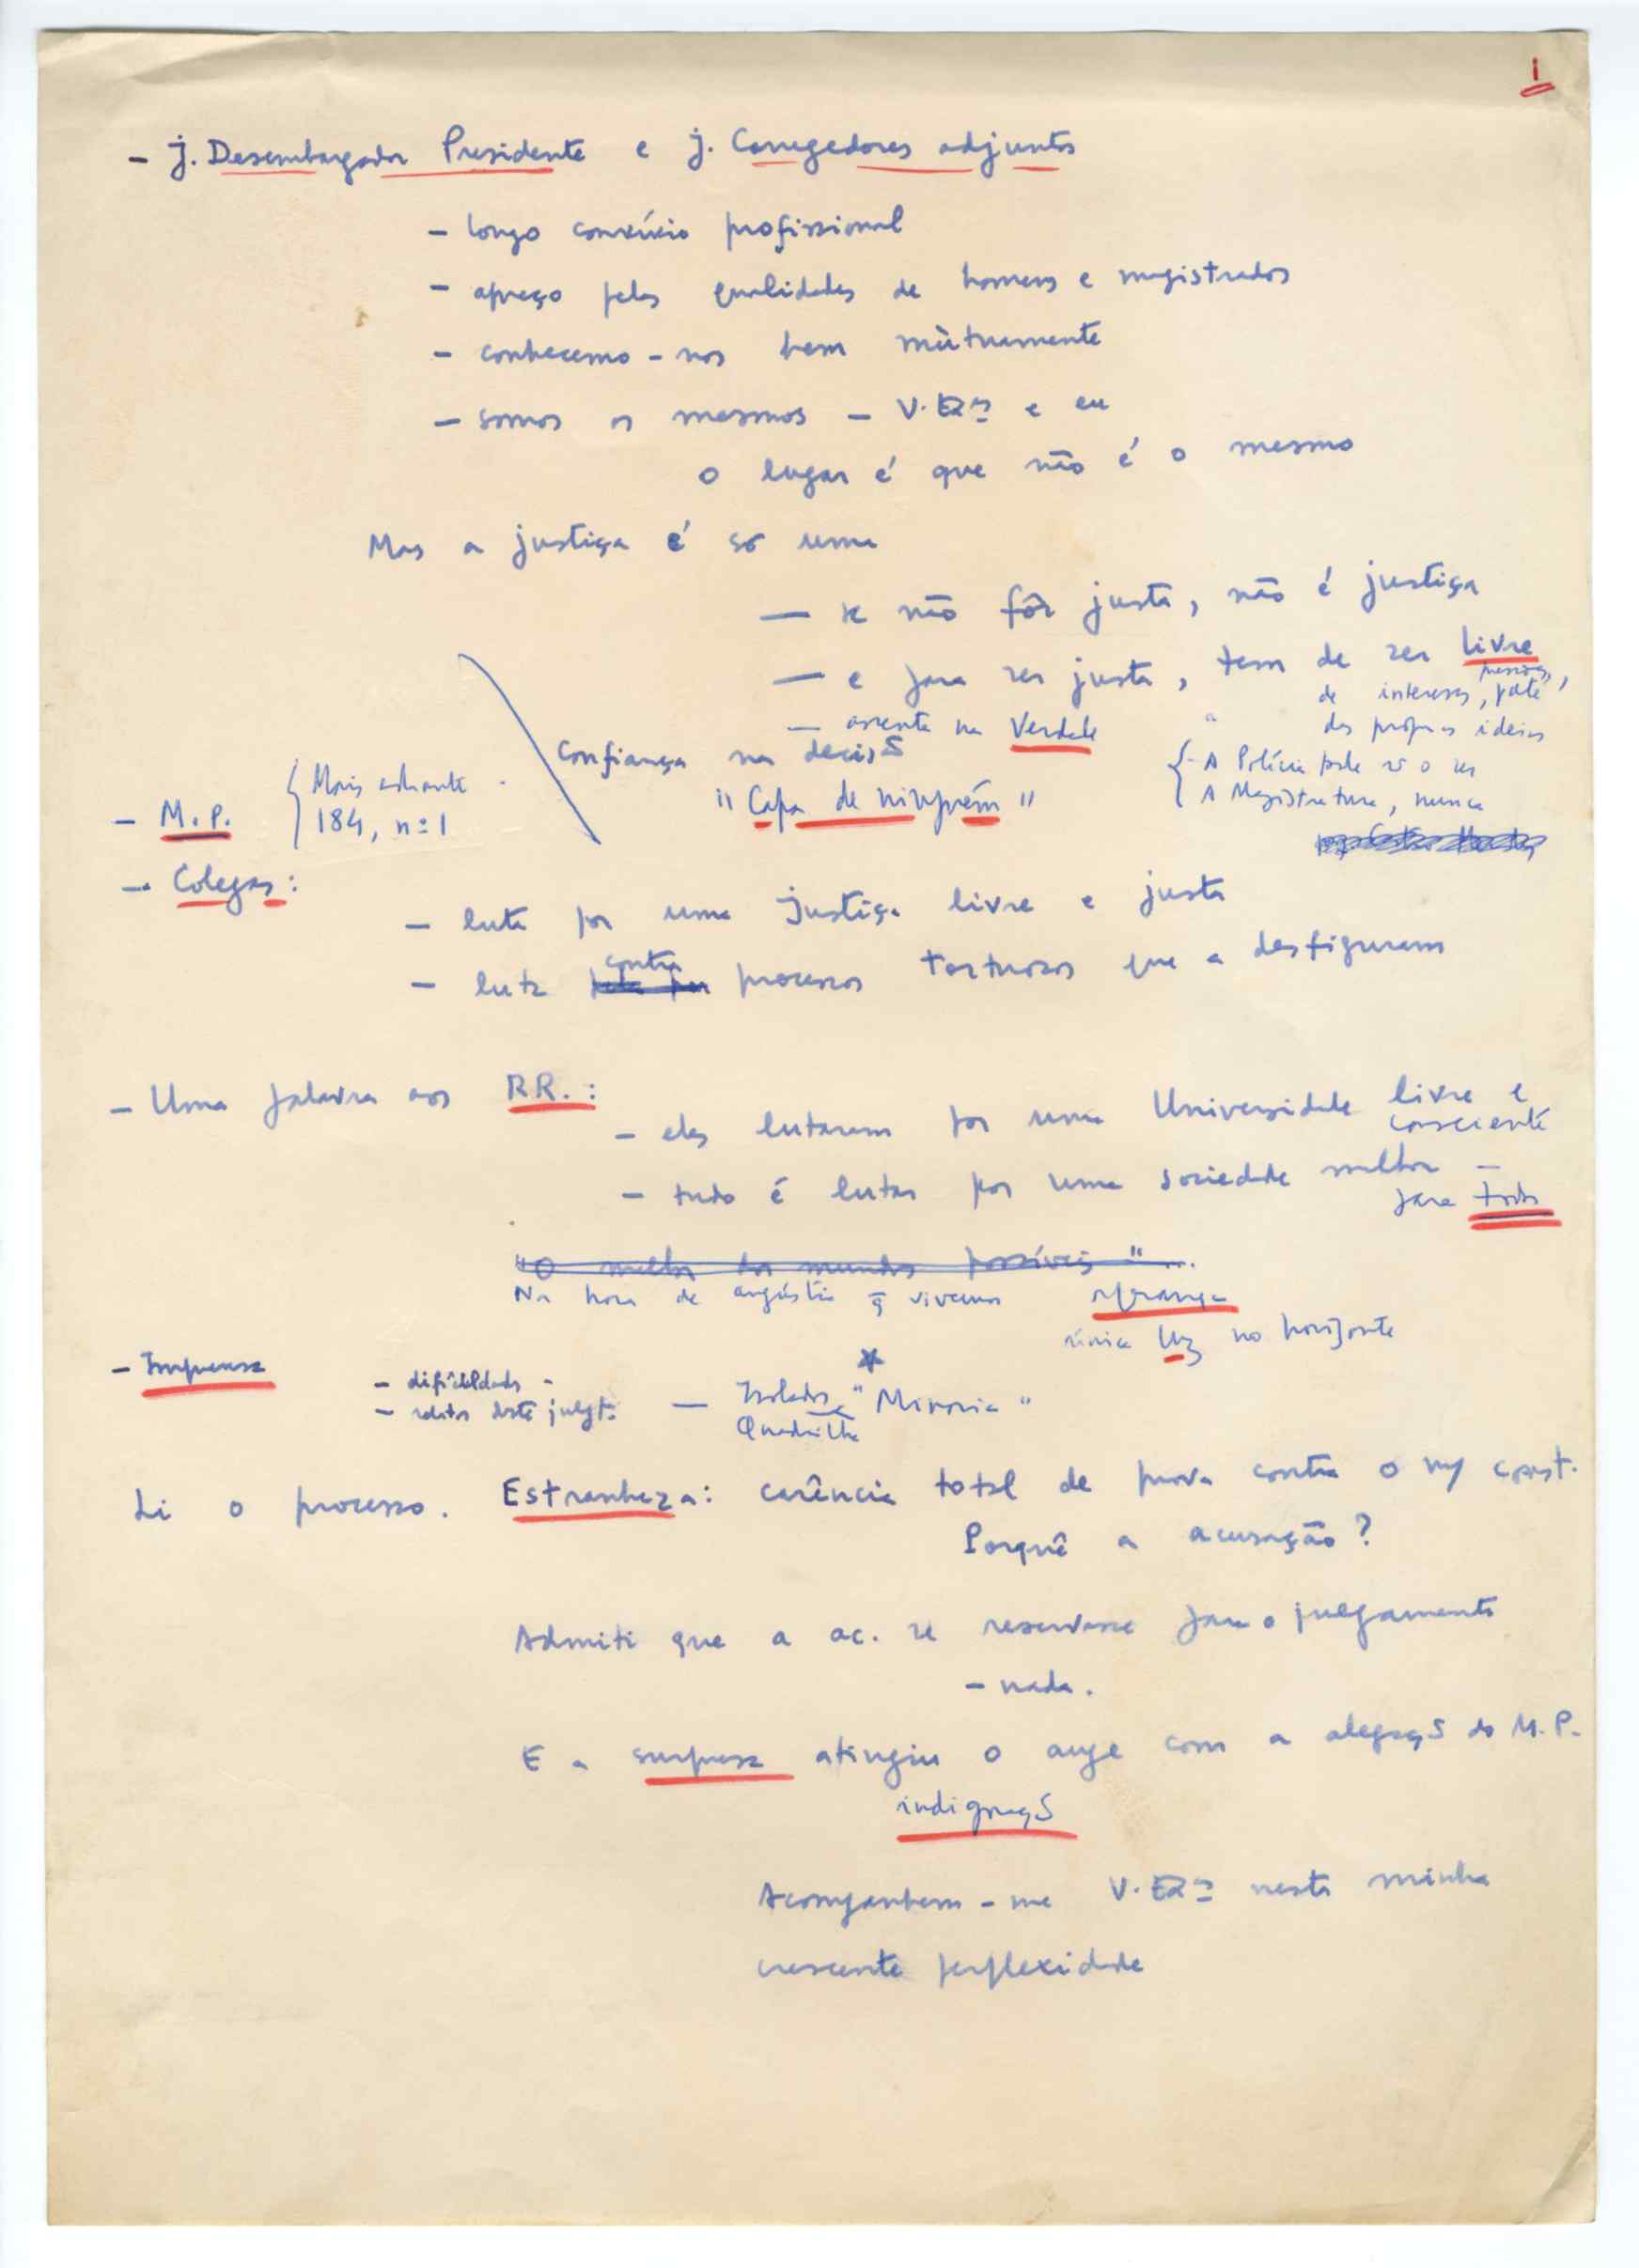 1
- J. Desembargador Presidente e J. Corregedores adjuntos
- longo convívio profissional
- apreço pelas qualidades de homens e magistrados
- conhecemo-nos bem mùtuamente
- somos os mesmos - V. Exas e eu
o lugar é que não é o mesmo
Mas a justiça é só uma
- se não fôr justa, não é justiça
- e para ser justa, tem de ser livre
de interesses, pressões,
- assente na Verdade " das próprias ideias
Confiança na decisão
{ - A Polícia pode não o ser
"Capa de ninguém"
A Magistratura, nunca
- M.P. { Mais adiante
184, nº 1
- Colegas:
- luta por uma Justiça livre e justa
- luta contra processos tortuosos que a desfiguram
- Uma palavra aos RR.:
- eles lutaram por uma Universidade livre e consciente
- tudo é lutar por uma sociedade melhor - para todos
"O melhor dos mundos possíveis"...
Na hora de angústia q̄ vivemos esperança
única luz no horizonte
- Imprensa
- dificuldades -
- relatos deste julgt.º - Isolados "Minoria"
Quadrilha
Li o processo. Estranheza: carência total de prova contra o m/ const.
Porquê a acusação?
Admiti que a ac. se reservasse para o julgamento
- nada.
E a surpresa atingiu o auge com a alegaçS do M.P.
indignaçS
Acompanhem-me V. Exas nesta minha
crescente perplexidade